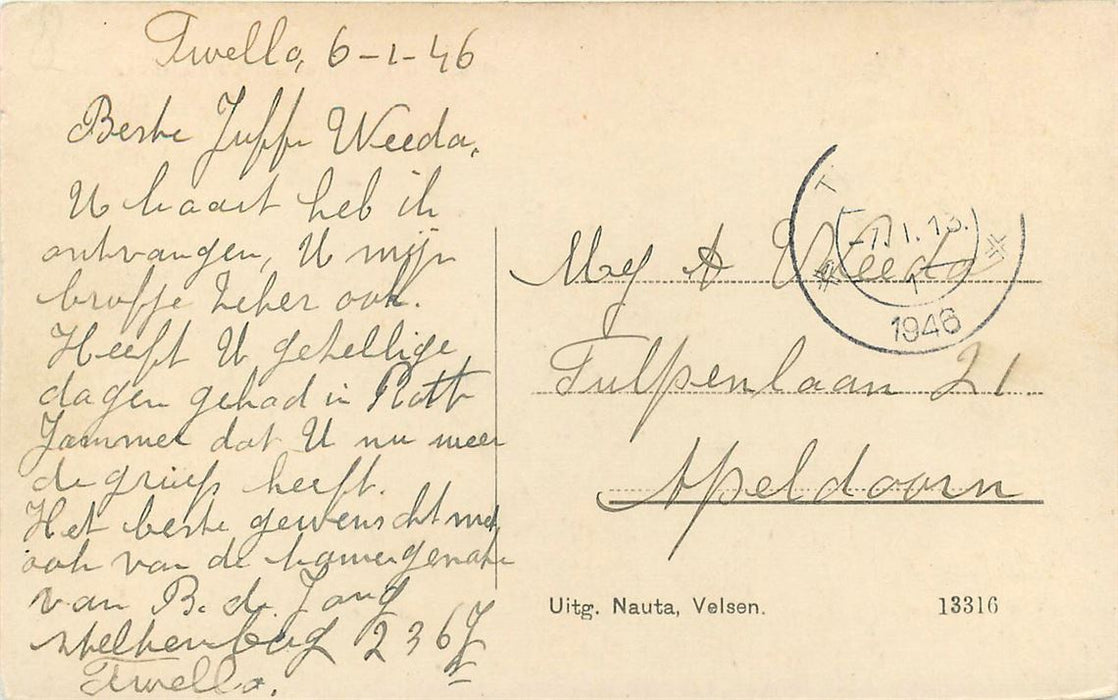 Twello, 6-1-46
Beste Juffr Weeda,
U kaart heb ik
ontvangen, U mijn
briefje zeker ook.
Heeft U gezellige
dagen gehad in Rott
Jammer dat U nu weer
de griep heeft.
Het beste gewenscht met
ook van de kamergenoten
van B. de Jong
236
Twello.
Mej A Weeda
Tulpenlaan 21
Apeldoorn
T
-7.1.13.
1946
Uitg. Nauta, Velsen.
13316